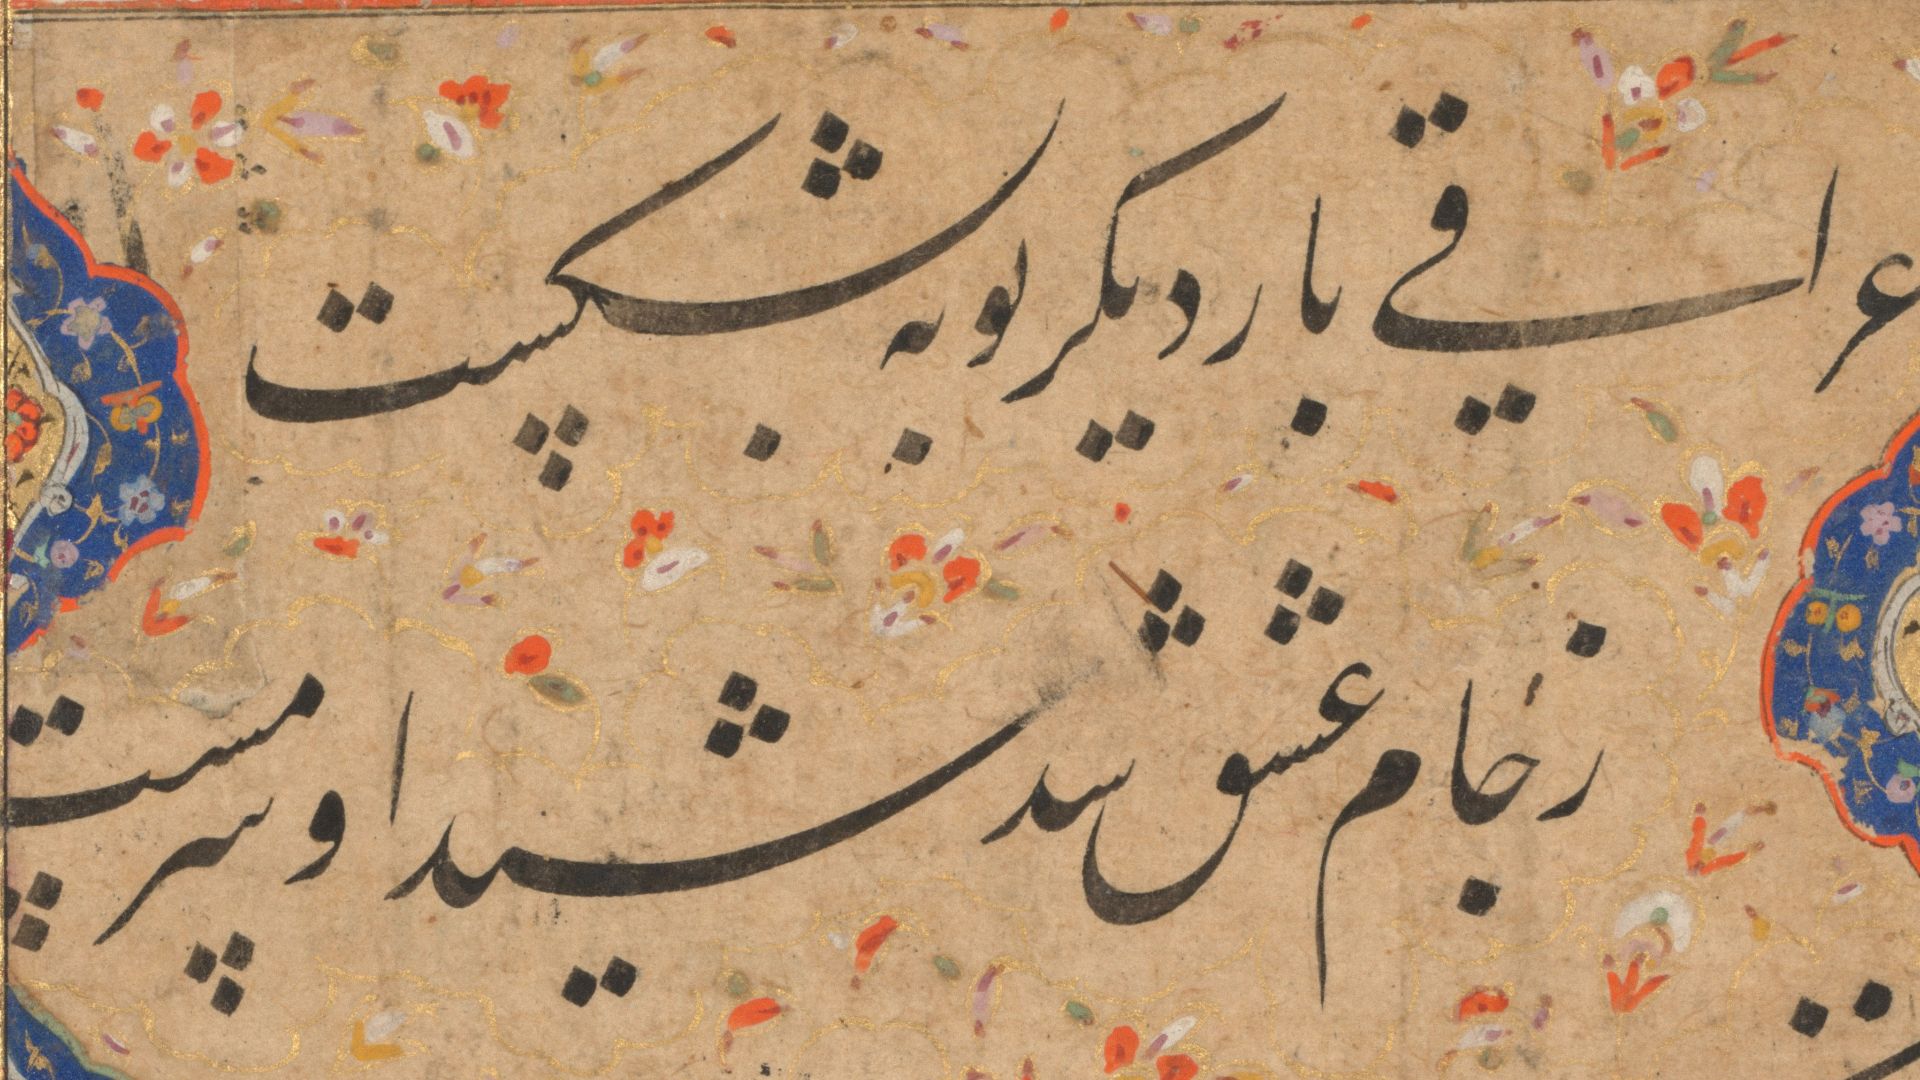 عراقی بار دیکر توبه بشکست
ز جام عشق شد شیدا و سرمست